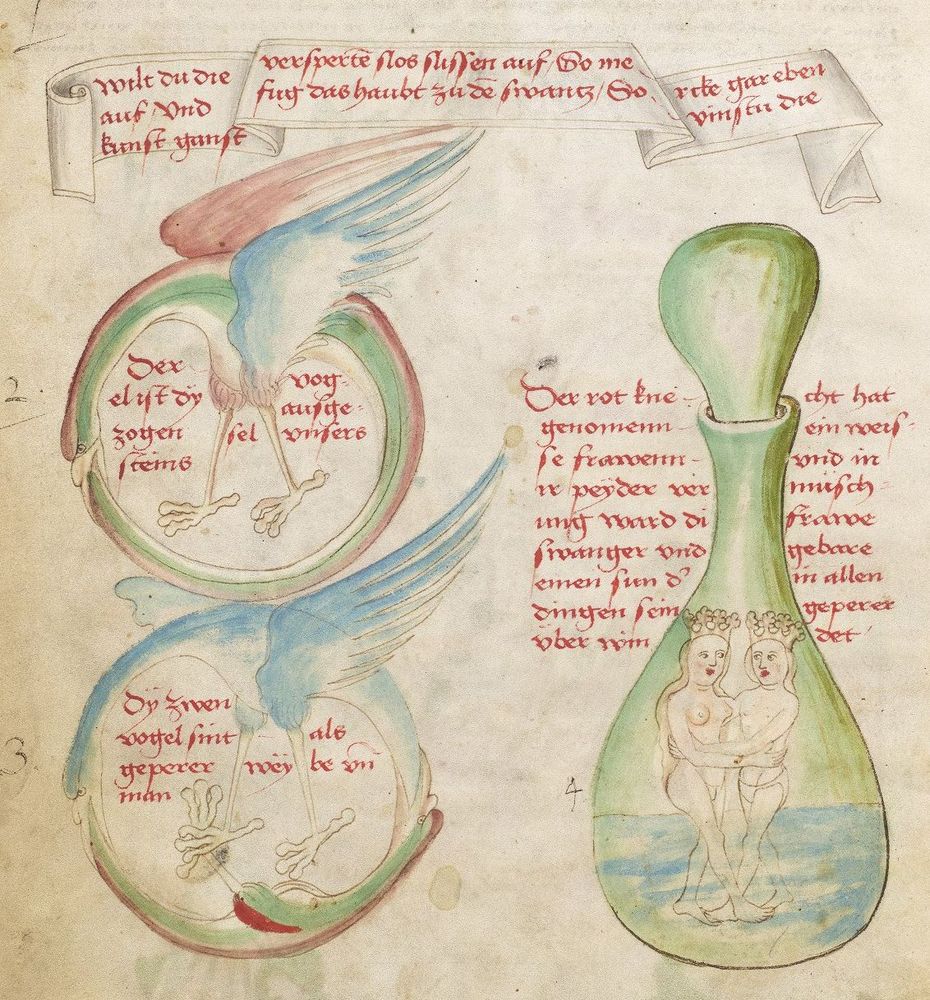 wilt du die
auf / Und
kunst gantz
verspertē slos slissen auf / So me
fug das haubt zu dē swantz / So
rcke gar eben
vinstu die
2
Der vog-
el ist dÿ ausge-
zogen sel vnsers
steins
3
dÿ zwen
vogel sint als
geperer weÿ be vn̄
man
Der rot kne- cht hat
genomenn ein weis-
se frawenn- vnd in
ir peÿder ver müsch-
ung ward di frawe
swanger vnd gebare
einen sun d' in allen
dingen sein geperer
vber win det
4